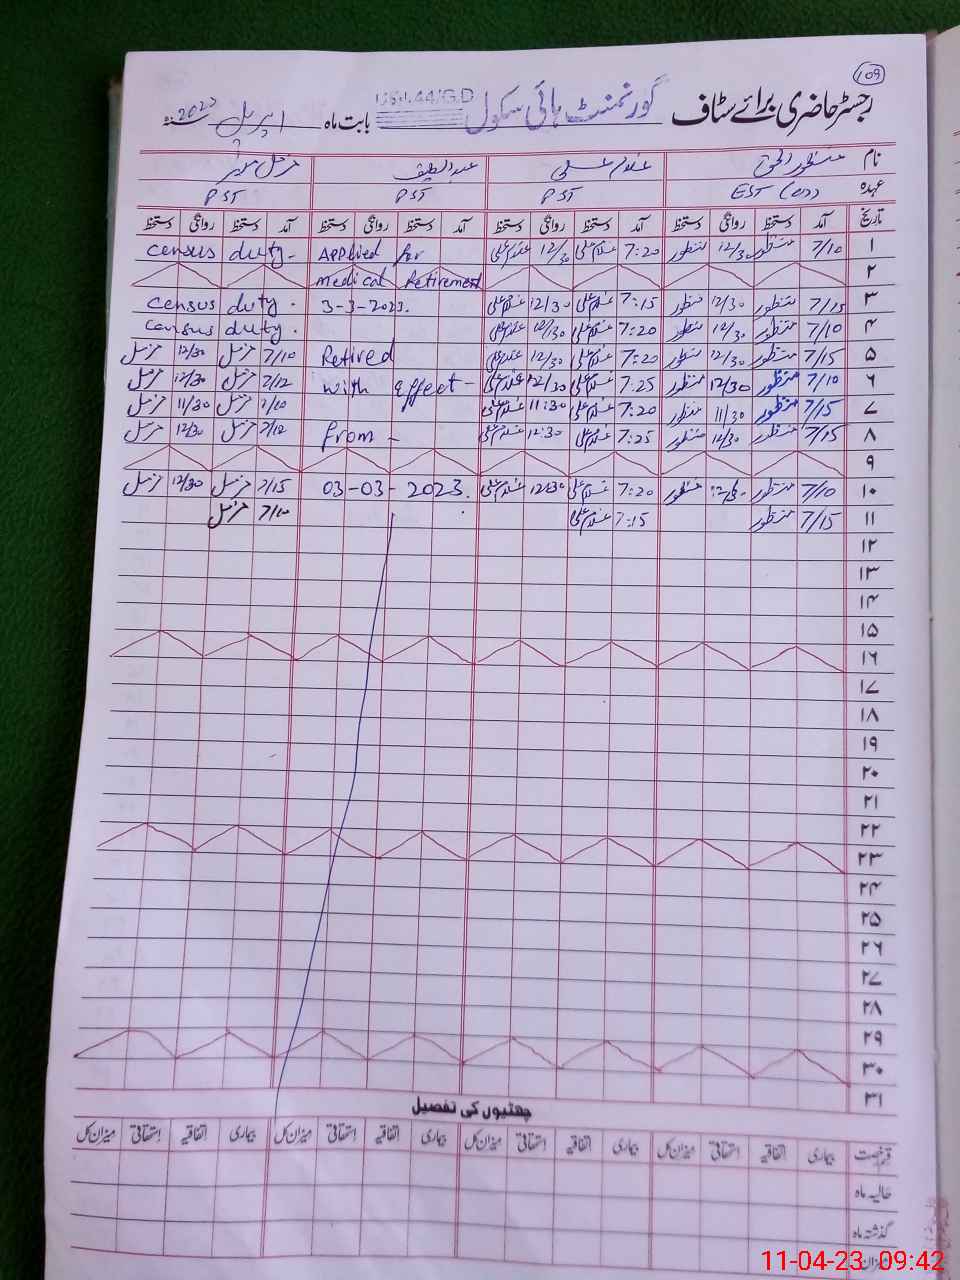 109
رجسٹر حاضری برائے سٹاف گورنمنٹ ہائی سکول 44/G.D بابت ماہ اپریل 2023
نام منظور الحق غلام علی عبدالطیف مزمل منیر
عہدہ EST PST PST PST
تاریخ آمد دستخط روانگی دستخط آمد دستخط روانگی دستخط آمد دستخط روانگی دستخط آمد دستخط روانگی دستخط
۱ 7/10 منظور 12/30 منظور 7:20 غلام علی 12/30 غلام علی Applied for census duty-
۲ medical Retirement
۳ 7/15 منظور 12/30 منظور 7:15 غلام علی 12/30 غلام علی 3-3-2023. census duty.
۴ 7/10 منظور 12/30 منظور 7:20 غلام علی 12/30 غلام علی census duty.
۵ 7/15 منظور 12/30 منظور 7:20 غلام علی 12/30 غلام علی Retired 7/10 مزمل 12/30 مزمل
۶ 7/10 منظور 12/30 منظور 7:25 غلام علی 12/30 غلام علی with effect- 7/12 مزمل 12/30 مزمل
۷ 7/15 منظور 11/30 منظور 7:20 غلام علی 11:30 غلام علی 7/10 مزمل 11/30 مزمل
۸ 7/15 منظور 12/30 منظور 7:25 غلام علی 12:30 غلام علی from- 7/12 مزمل 12/30 مزمل
۹
۱۰ 7/10 منظور منظور 7:20 غلام علی 12:30 غلام علی 03-03-2023. 7/15 مزمل 12/30 مزمل
۱۱ 7/15 منظور 7:15 غلام علی 7/10 مزمل
۱۲
۱۳
۱۴
۱۵
۱۶
۱۷
۱۸
۱۹
۲۰
۲۱
۲۲
۲۳
۲۴
۲۵
۲۶
۲۷
۲۸
۲۹
۳۰
۳۱
چھٹیوں کی تفصیل
قسم رخصت بیماری اتفاقیہ استحقاقی میزان کل بیماری اتفاقیہ استحقاقی میزان کل بیماری اتفاقیہ استحقاقی میزان کل بیماری اتفاقیہ استحقاقی میزان کل
حالیہ ماہ
گذشتہ ماہ
میزان
11-04-23 09:42